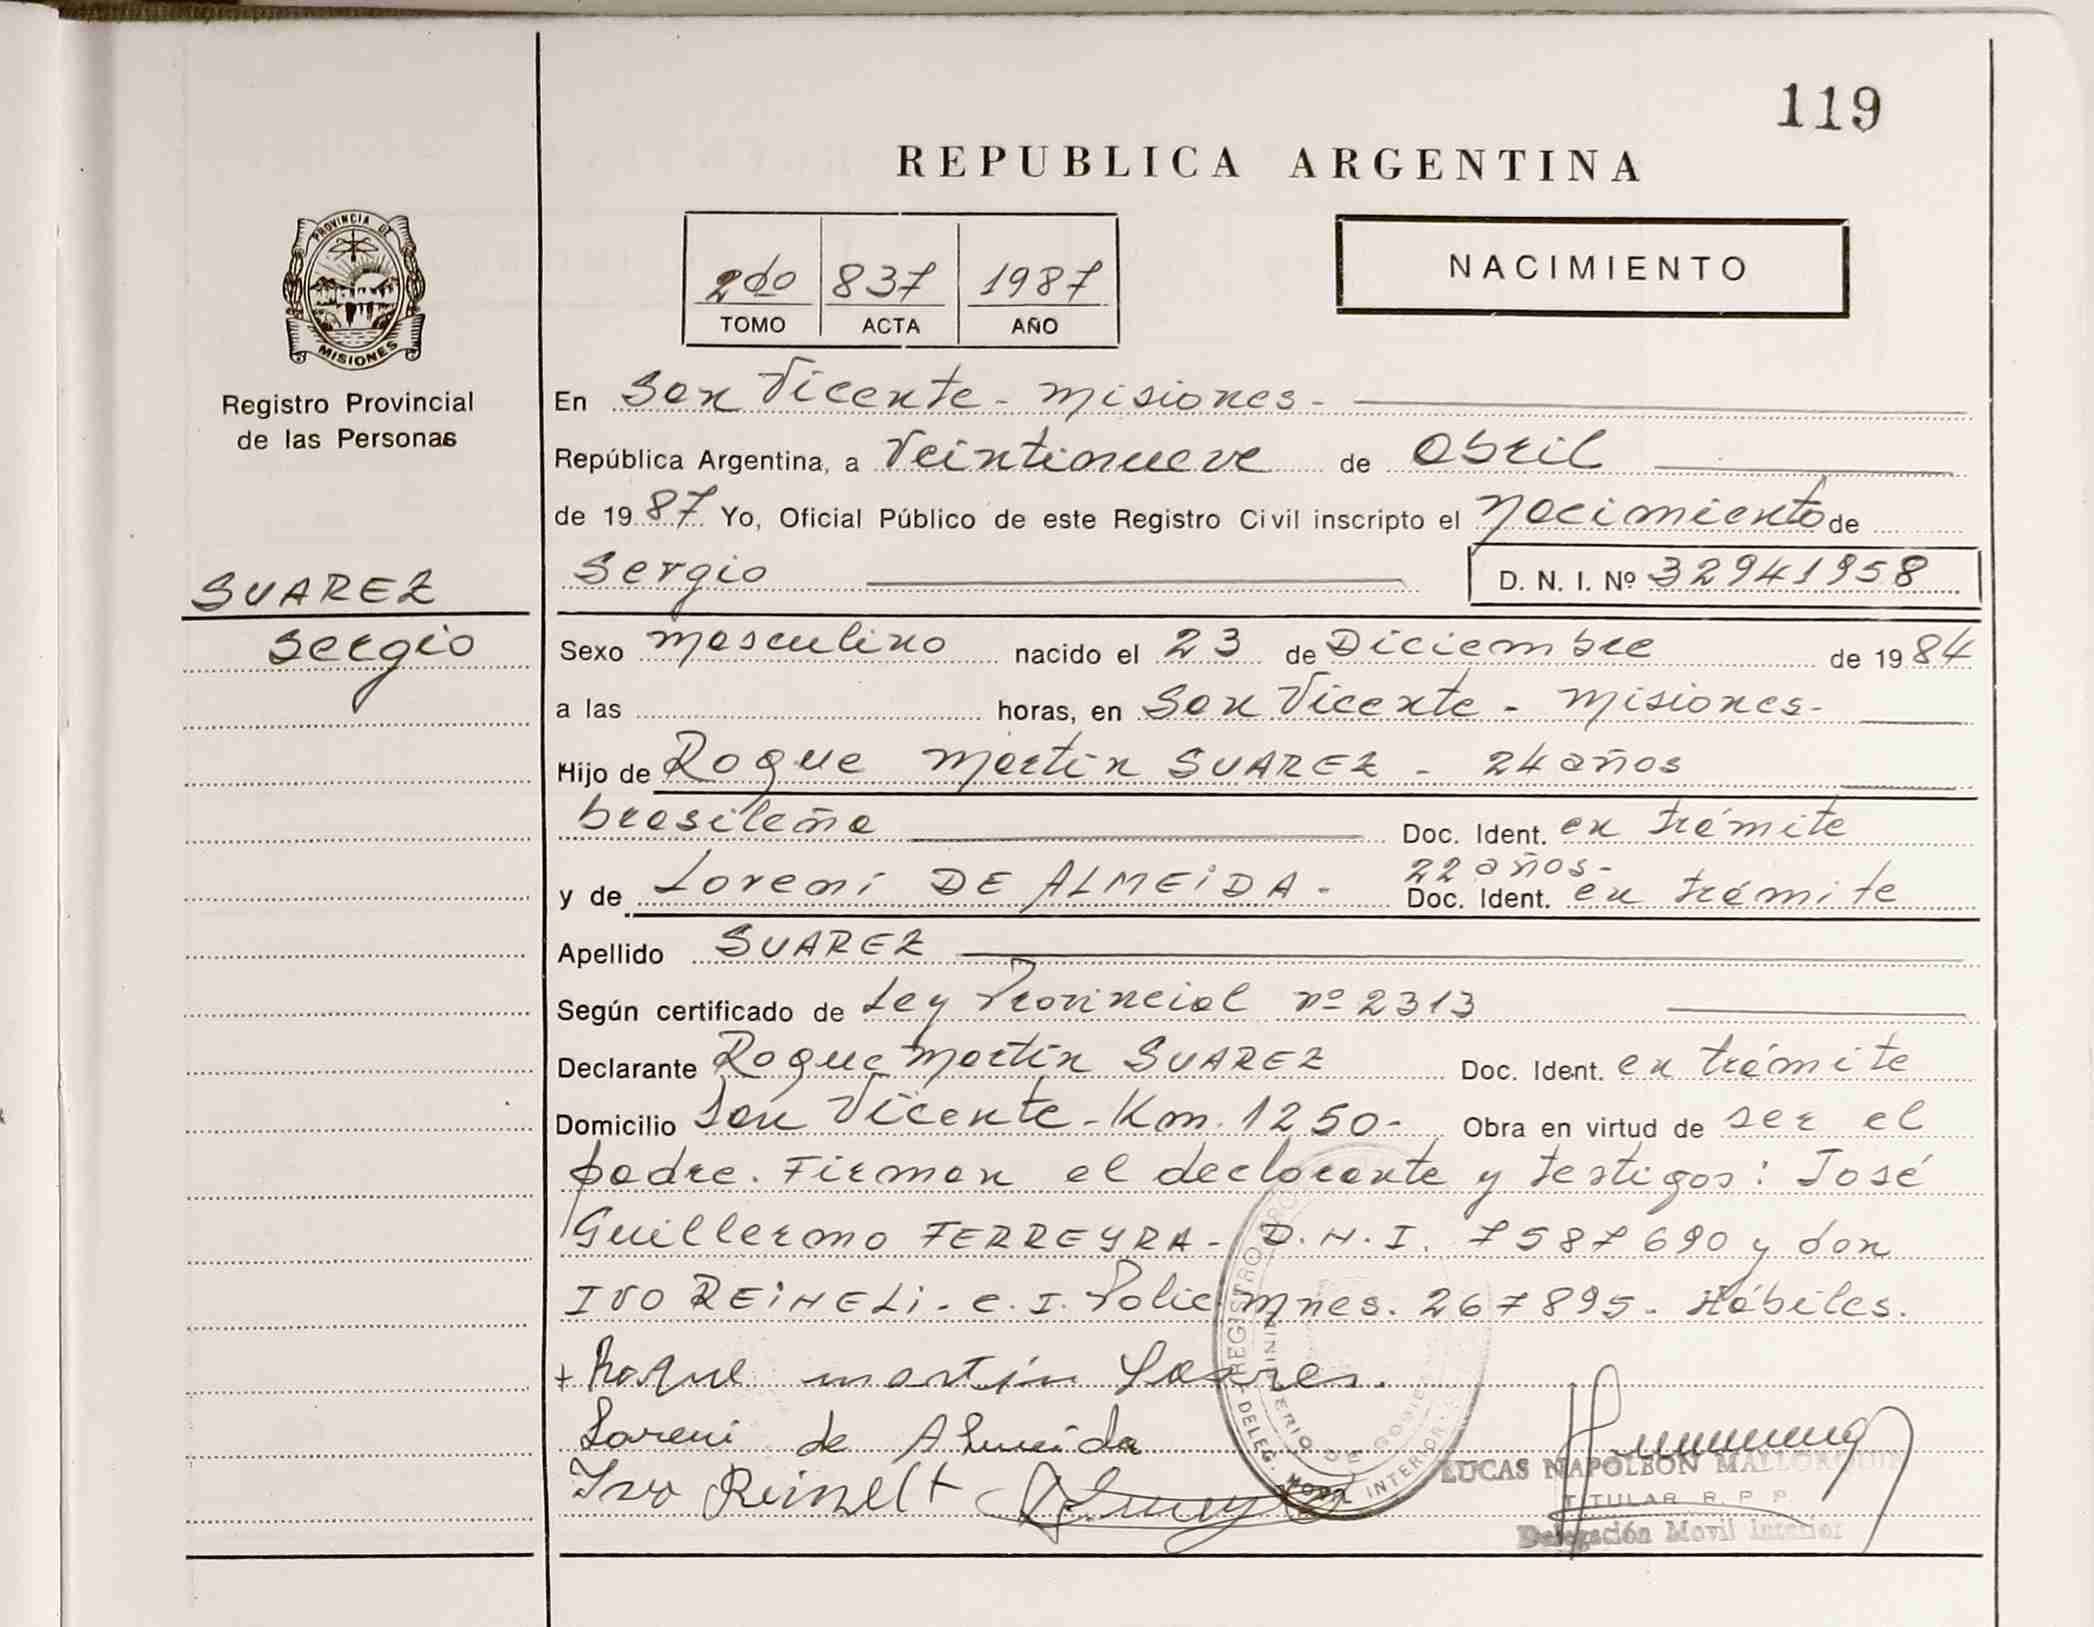 119
REPUBLICA ARGENTINA
PROVINCIA DE
MISIONES
Registro Provincial
de las Personas
2do 837 1987
TOMO ACTA AÑO
NACIMIENTO
En San Vicente - Misiones -
República Argentina, a Veintinueve de Abril
de 1987 Yo, Oficial Público de este Registro Civil inscripto el Nacimiento de
SUAREZ
Sergio
Sergio D. N. I. Nº 32941958
Sexo Masculino nacido el 23 de Diciembre de 1984
a las horas, en San Vicente - Misiones -
Hijo de Roque Martín SUAREZ - 24 años
brasileña Doc. Ident. en trámite
22 años -
y de Loreni DE ALMEIDA - Doc. Ident. en trámite
Apellido SUAREZ
Según certificado de Ley Provincial nº 2313
Declarante Roque Martín SUAREZ Doc. Ident. en trámite
Domicilio San Vicente - Km. 1250 - Obra en virtud de ser el
padre. Firman el declarante y testigos: José
Guillermo FERREYRA - D.N.I. 7587690 y don
IVO REINELI - C.I. Polic Mnes. 267895 - Hábiles.
+ Roque martín Soares.
Loreni de Almeida
Ivo Reinelt
REGISTRO PRO
MINISTERIO DE GOBIE
DELEG. MOVIL INTERIOR
LUCAS NAPOLEON MALLORQUIN
TITULAR R. P. P.
Delegación Movil Interior